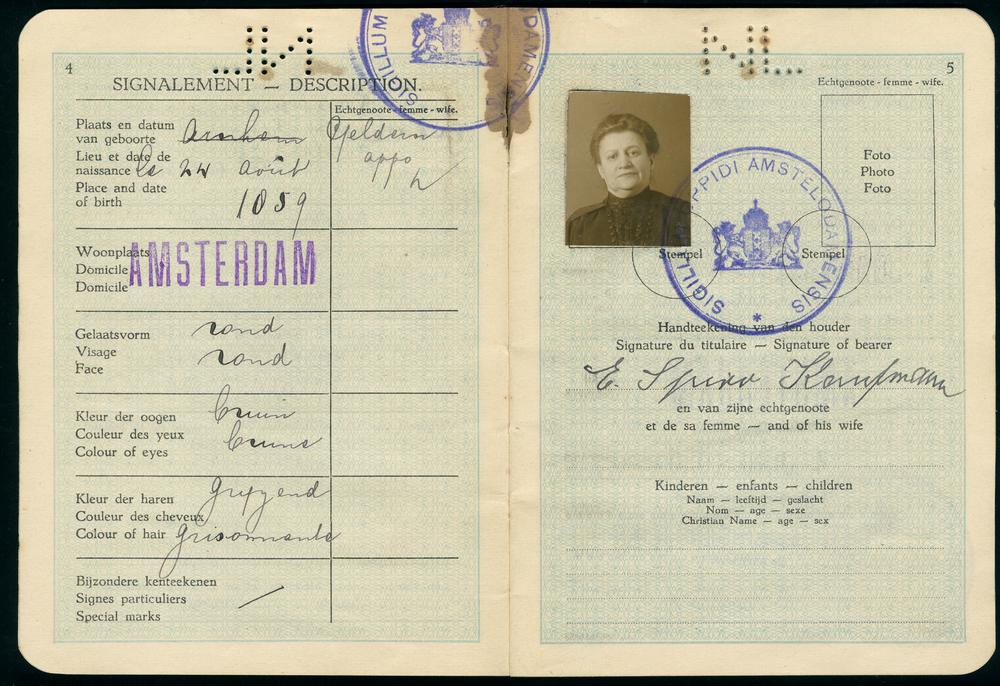 4
SIGNALEMENT — DESCRIPTION.
Echtgenoote - femme - wife.
Plaats en datum
van geboorte
Arnhem Geldern
Lieu et date de
naissance
le 24 août
Place and date
of birth
1859
Woonplaats
Domicile
Domicile
AMSTERDAM
Gelaatsvorm rond
Visage
Face rond
Kleur der oogen bruin
Couleur des yeux
Colour of eyes bruns
Kleur der haren grijzend
Couleur des cheveux
Colour of hair grisonnants
Bijzondere kenteekenen
Signes particuliers
Special marks
SIGILLUM
DAMENSIS
NL
NL
5
Echtgenoote - femme - wife.
Foto
Photo
Foto
Stempel
Stempel
SIGILL OPPIDI AMSTELODAMENSIS *
Handteekening van den houder
Signature du titulaire — Signature of bearer
E. Spiro Kaufmann
en van zijne echtgenoote
et de sa femme — and of his wife
Kinderen — enfants — children
Naam — leeftijd — geslacht
Nom — age — sexe
Christian Name — age — sex